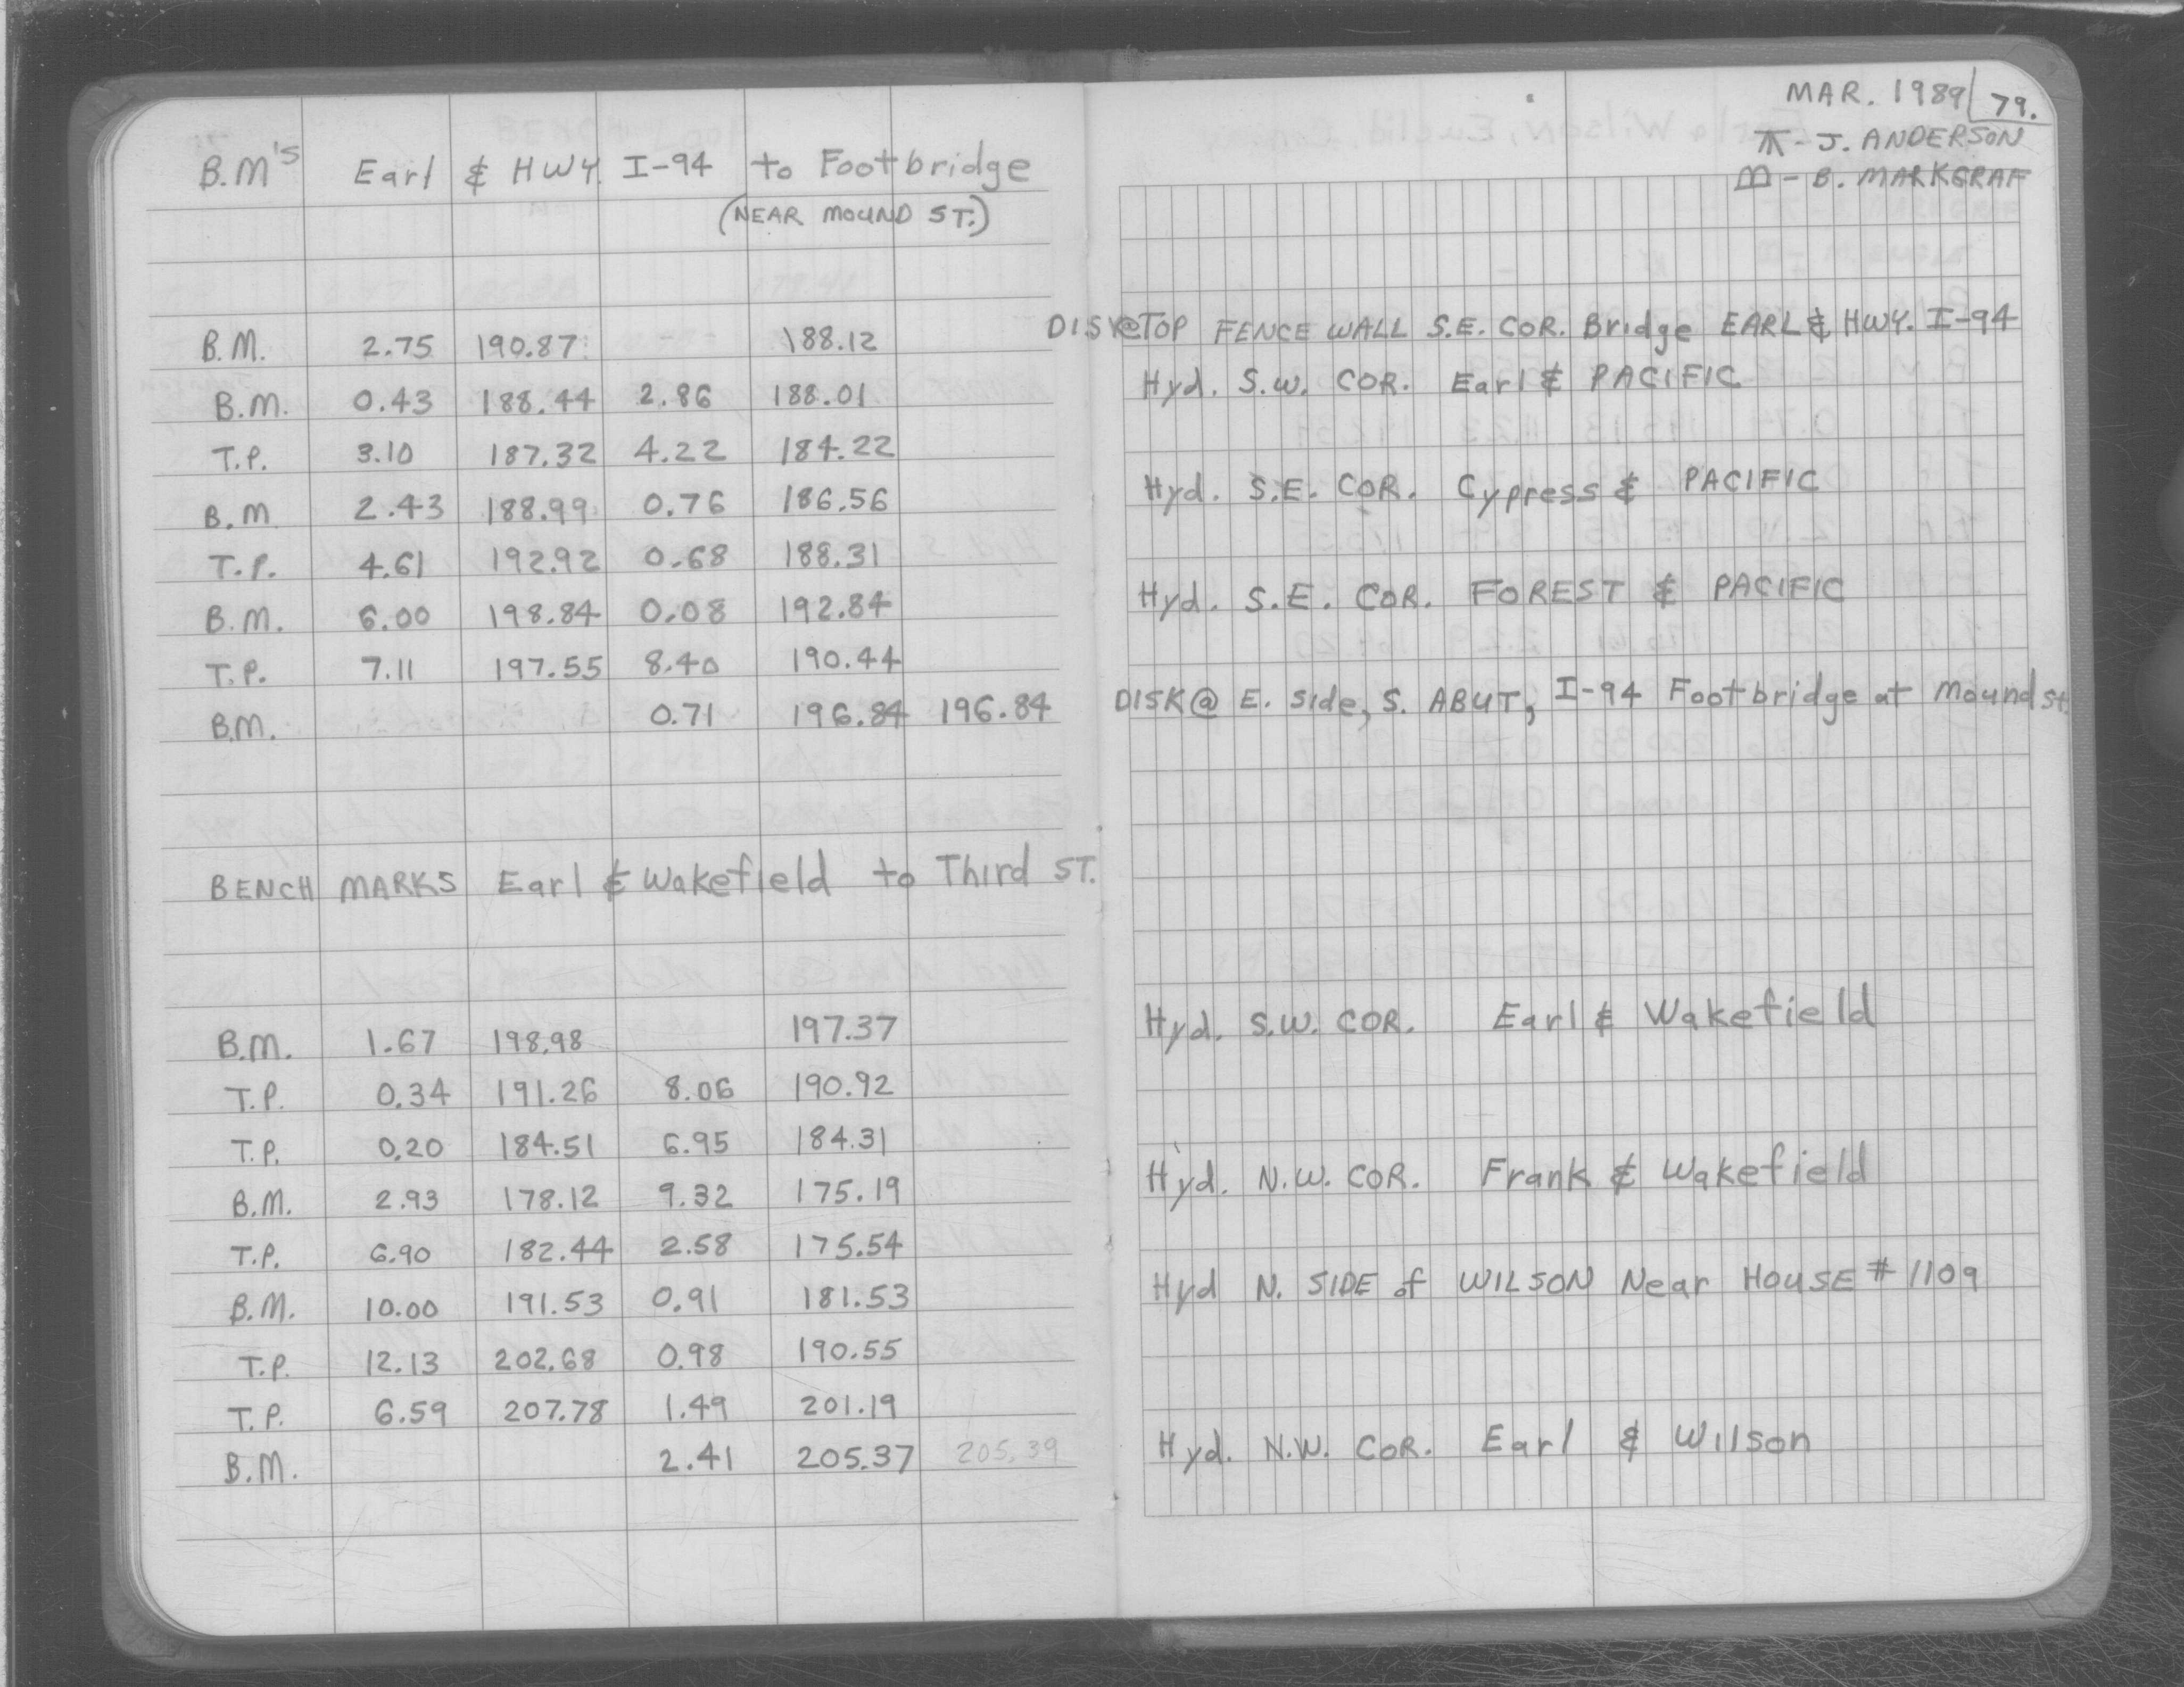 B.M's Earl & HWY. I-94 to Footbridge
(NEAR MOUND ST.)
B.M. 2.75 190.87 188.12
B.M. 0.43 188.44 2.86 188.01
T.P. 3.10 187.32 4.22 184.22
B.M 2.43 188.99 0.76 186.56
T.P. 4.61 192.92 0.68 188.31
B.M. 6.00 198.84 0.08 192.84
T.P. 7.11 197.55 8.40 190.44
B.M. 0.71 196.84 196.84
BENCH MARKS Earl & Wakefield to Third ST.
B.M. 1.67 198.98 197.37
T.P. 0.34 191.26 8.06 190.92
T.P. 0.20 184.51 6.95 184.31
B.M. 2.93 178.12 9.32 175.19
T.P. 6.90 182.44 2.58 175.54
B.M. 10.00 191.53 0.91 181.53
T.P. 12.13 202.68 0.98 190.55
T.P. 6.59 207.78 1.49 201.19
B.M. 2.41 205.37 205.39
MAR. 1989 79.
J. ANDERSON
B. MARKGRAF
DISK@TOP FENCE WALL S.E. COR. Bridge EARL & HWY. I-94
Hyd. S.W. COR. Earl & PACIFIC
Hyd. S.E. COR. Cypress & PACIFIC
Hyd. S.E. COR. FOREST & PACIFIC
DISK@ E. Side, S. ABUT, I-94 Footbridge at Mound St.
Hyd. S.W. COR. Earl & Wakefield
Hyd. N.W. COR. Frank & Wakefield
Hyd N. SIDE of WILSON Near HOUSE # 1109
Hyd. N.W. COR. Earl & Wilson